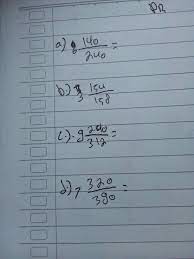 PR
a) 8 140/240 =
b) 3 154/158
c). 9 200/312 =
d) 7 320/380 =